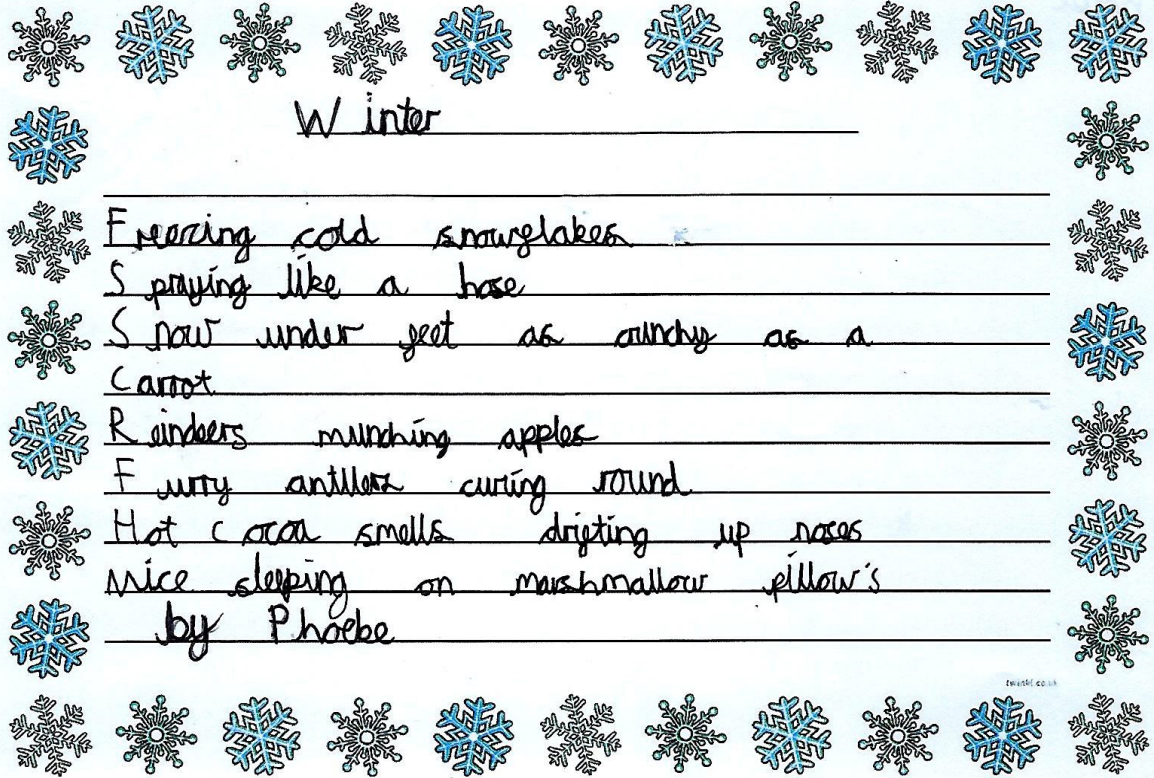 Winter
Freezing cold snowflakes
Spraying like a hose
Snow under feet as crunchy as a
Carrot
Reindeers munching apples
Furry antllers curing round
Hot Cocoa smells drifting up noses
Mice sleeping on marshmallow pillow's
by Phoebe
twinkl.co.uk